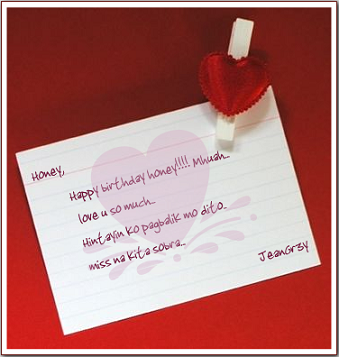 Honey,
Happy birthday honey!!!! Mhuah..
love u so much..
Hintayin ko pagbalik mo dito..
miss na kita sobra..
JeanGr3y